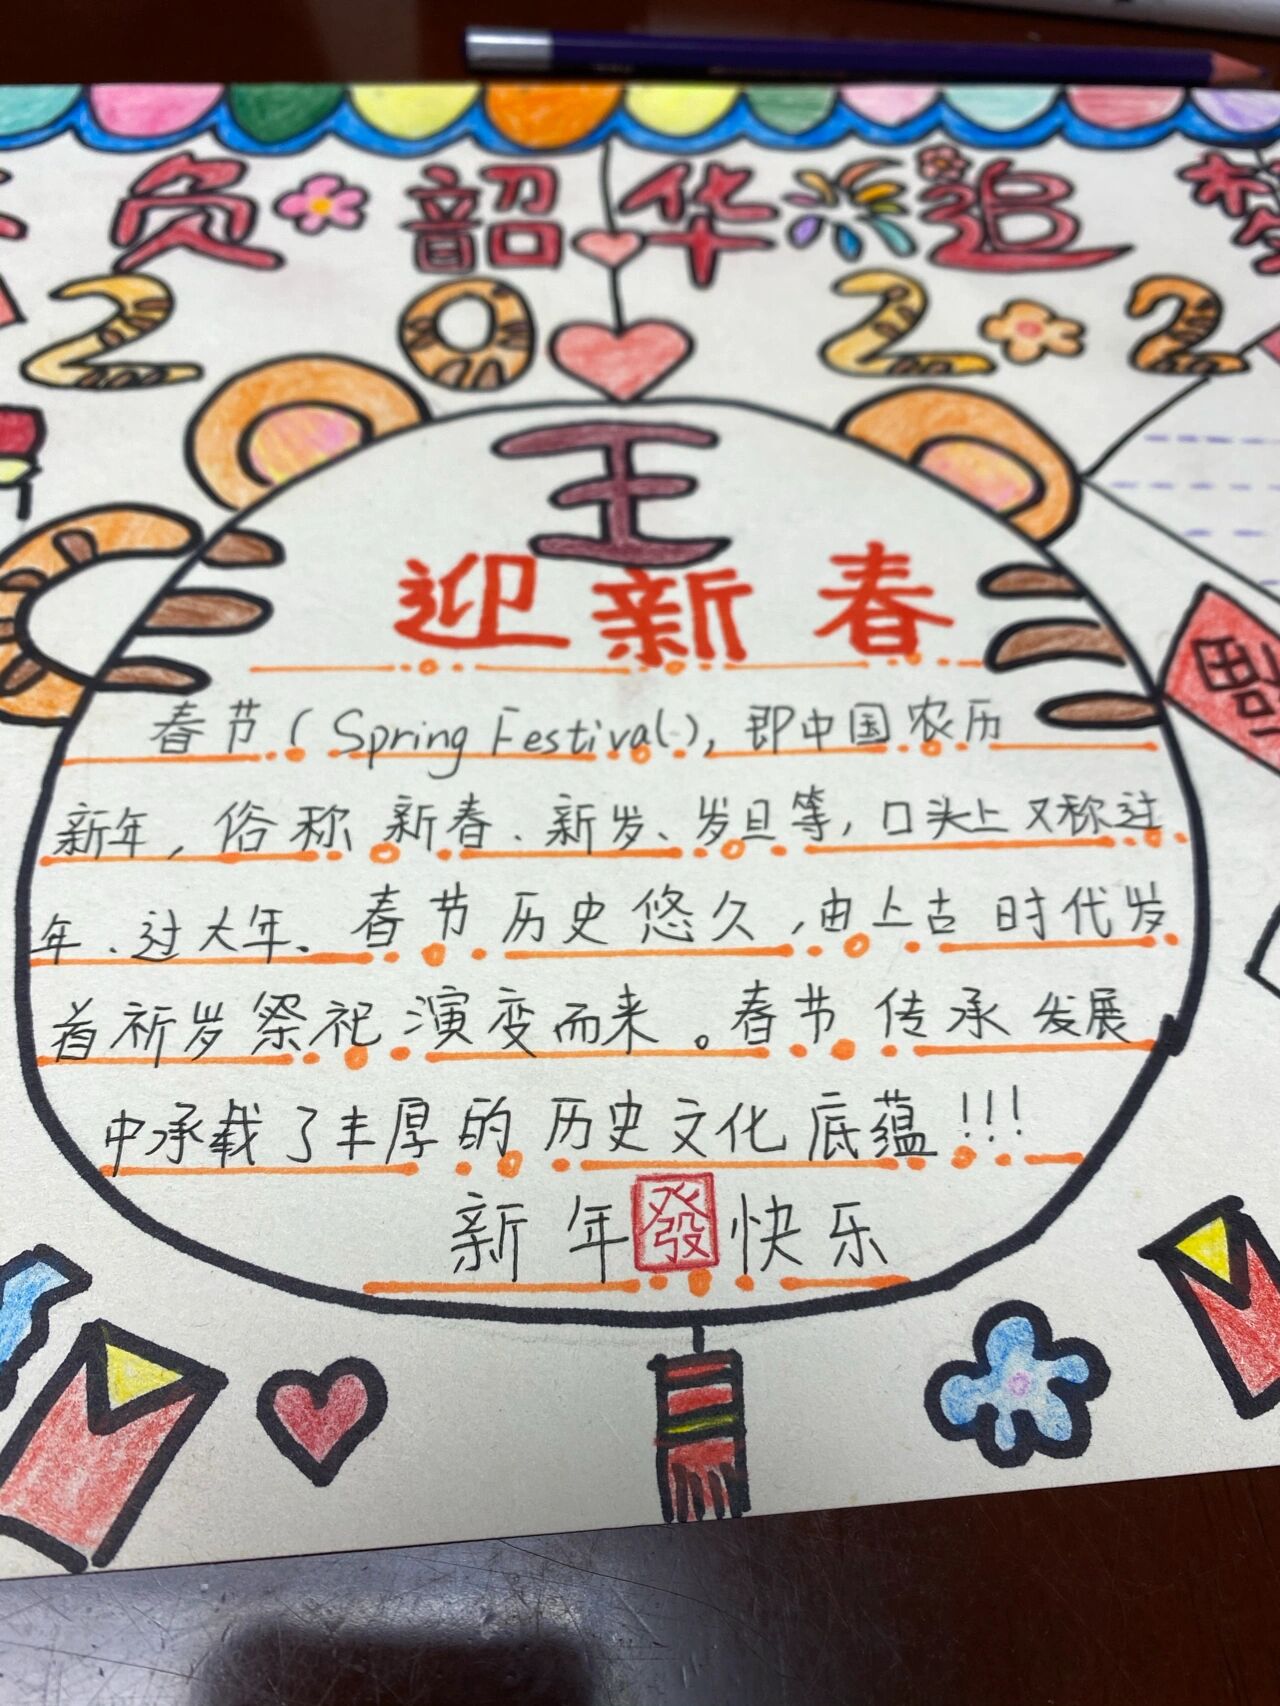 负韶华追梦
2022
王
迎新春
福
春节(Spring Festival),即中国农历
新年,俗称新春、新岁、岁旦等,口头上又称过
年、过大年、春节历史悠久,由上古时代岁
首祈岁祭祀演变而来。春节传承发展
中承载了丰厚的历史文化底蕴!!!
新年發快乐